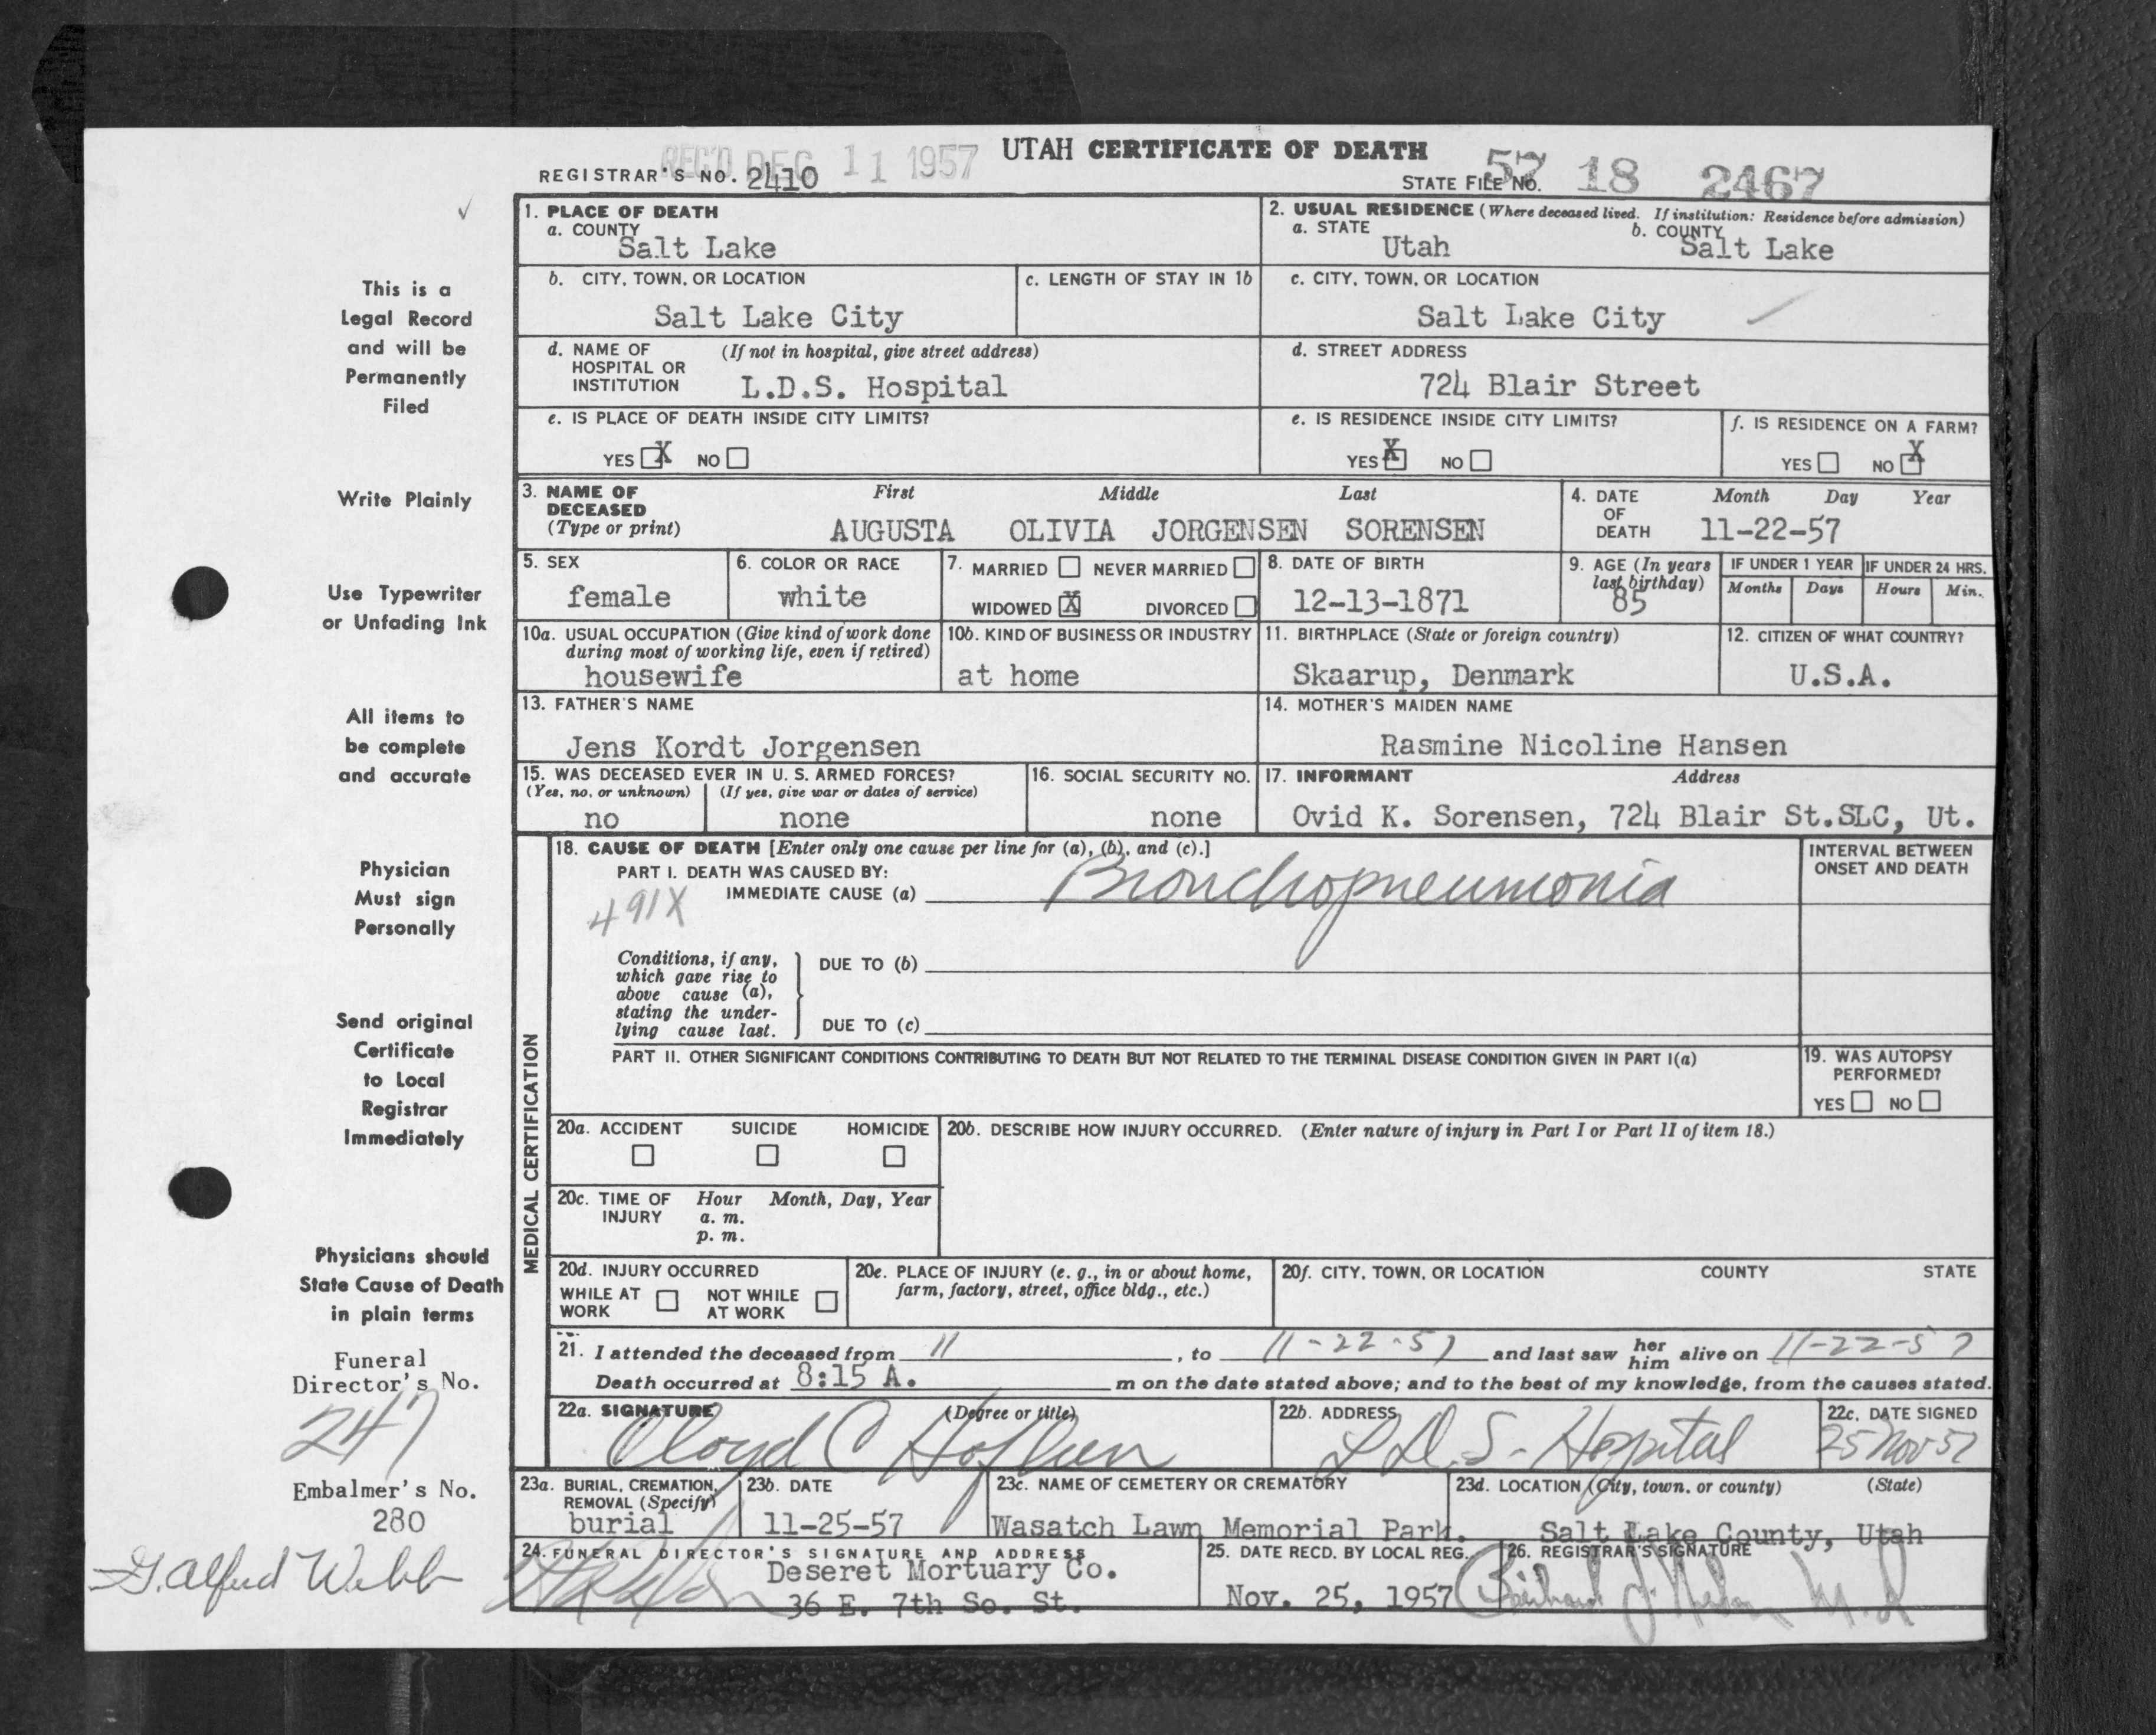 UTAH CERTIFICATE OF DEATH
REC'D DEC 11 1957
REGISTRAR'S NO. 2410
STATE FILE NO. 57 18 2467
1. PLACE OF DEATH
a. COUNTY
Salt Lake
2. USUAL RESIDENCE (Where deceased lived. If institution: Residence before admission)
a. STATE
Utah
b. COUNTY
Salt Lake
b. CITY, TOWN, OR LOCATION
Salt Lake City
c. LENGTH OF STAY IN 1b
c. CITY, TOWN, OR LOCATION
Salt Lake City
d. NAME OF HOSPITAL OR INSTITUTION
(If not in hospital, give street address)
L.D.S. Hospital
d. STREET ADDRESS
724 Blair Street
e. IS PLACE OF DEATH INSIDE CITY LIMITS?
YES X NO
e. IS RESIDENCE INSIDE CITY LIMITS?
YES X NO
f. IS RESIDENCE ON A FARM?
YES NO X
3. NAME OF DECEASED
(Type or print)
First Middle Last
AUGUSTA OLIVIA JORGENSEN SORENSEN
4. DATE OF DEATH
Month Day Year
11-22-57
5. SEX
female
6. COLOR OR RACE
white
7. MARRIED NEVER MARRIED
WIDOWED X DIVORCED
8. DATE OF BIRTH
12-13-1871
9. AGE (In years last birthday)
85
IF UNDER 1 YEAR
Months Days
IF UNDER 24 HRS.
Hours Min.
10a. USUAL OCCUPATION (Give kind of work done during most of working life, even if retired)
housewife
10b. KIND OF BUSINESS OR INDUSTRY
at home
11. BIRTHPLACE (State or foreign country)
Skaarup, Denmark
12. CITIZEN OF WHAT COUNTRY?
U.S.A.
13. FATHER'S NAME
Jens Kordt Jorgensen
14. MOTHER'S MAIDEN NAME
Rasmine Nicoline Hansen
15. WAS DECEASED EVER IN U. S. ARMED FORCES?
(Yes, no, or unknown) (If yes, give war or dates of service)
no none
16. SOCIAL SECURITY NO.
none
17. INFORMANT Address
Ovid K. Sorensen, 724 Blair St.SLC, Ut.
MEDICAL CERTIFICATION
18. CAUSE OF DEATH [Enter only one cause per line for (a), (b), and (c).]
PART I. DEATH WAS CAUSED BY:
IMMEDIATE CAUSE (a) Bronchopneumonia
491X
Conditions, if any, which gave rise to above cause (a), stating the underlying cause last.
DUE TO (b)
DUE TO (c)
INTERVAL BETWEEN ONSET AND DEATH
PART II. OTHER SIGNIFICANT CONDITIONS CONTRIBUTING TO DEATH BUT NOT RELATED TO THE TERMINAL DISEASE CONDITION GIVEN IN PART I(a)
19. WAS AUTOPSY PERFORMED?
YES NO
20a. ACCIDENT SUICIDE HOMICIDE
20b. DESCRIBE HOW INJURY OCCURRED. (Enter nature of injury in Part I or Part II of item 18.)
20c. TIME OF INJURY
Hour Month, Day, Year
a. m.
p. m.
20d. INJURY OCCURRED
WHILE AT WORK NOT WHILE AT WORK
20e. PLACE OF INJURY (e. g., in or about home, farm, factory, street, office bldg., etc.)
20f. CITY, TOWN, OR LOCATION COUNTY STATE
21. I attended the deceased from 11 , to 11-22-57 and last saw her him alive on 11-22-57
Death occurred at 8:15 A. m on the date stated above; and to the best of my knowledge, from the causes stated.
22a. SIGNATURE (Degree or title)
22b. ADDRESS
L.D.S. Hospital
22c. DATE SIGNED
25 Nov 57
23a. BURIAL, CREMATION, REMOVAL (Specify)
burial
23b. DATE
11-25-57
23c. NAME OF CEMETERY OR CREMATORY
Wasatch Lawn Memorial Park.
23d. LOCATION (City, town, or county) (State)
Salt Lake County, Utah
24. FUNERAL DIRECTOR'S SIGNATURE AND ADDRESS
Deseret Mortuary Co.
36 E. 7th So. St.
25. DATE RECD. BY LOCAL REG.
Nov. 25, 1957
26. REGISTRAR'S SIGNATURE
This is a
Legal Record
and will be
Permanently
Filed
Write Plainly
Use Typewriter
or Unfading Ink
All items to
be complete
and accurate
Physician
Must sign
Personally
Send original
Certificate
to Local
Registrar
Immediately
Physicians should
State Cause of Death
in plain terms
Funeral
Director's No.
247
Embalmer's No.
280
G. Alfred Webb